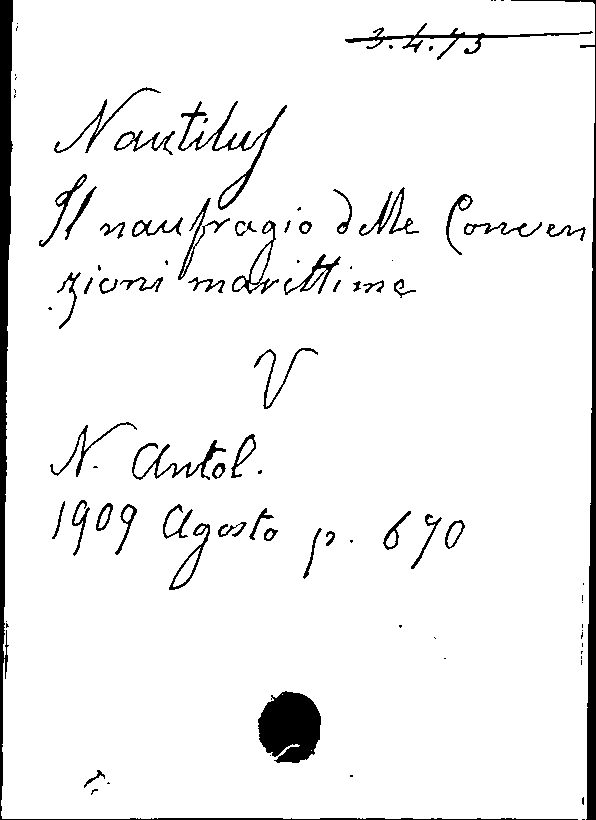 3.4.73
Nautilus
Il naufragio delle Conven
zioni marittime
V
N. Antol.
1909 Agosto p. 670